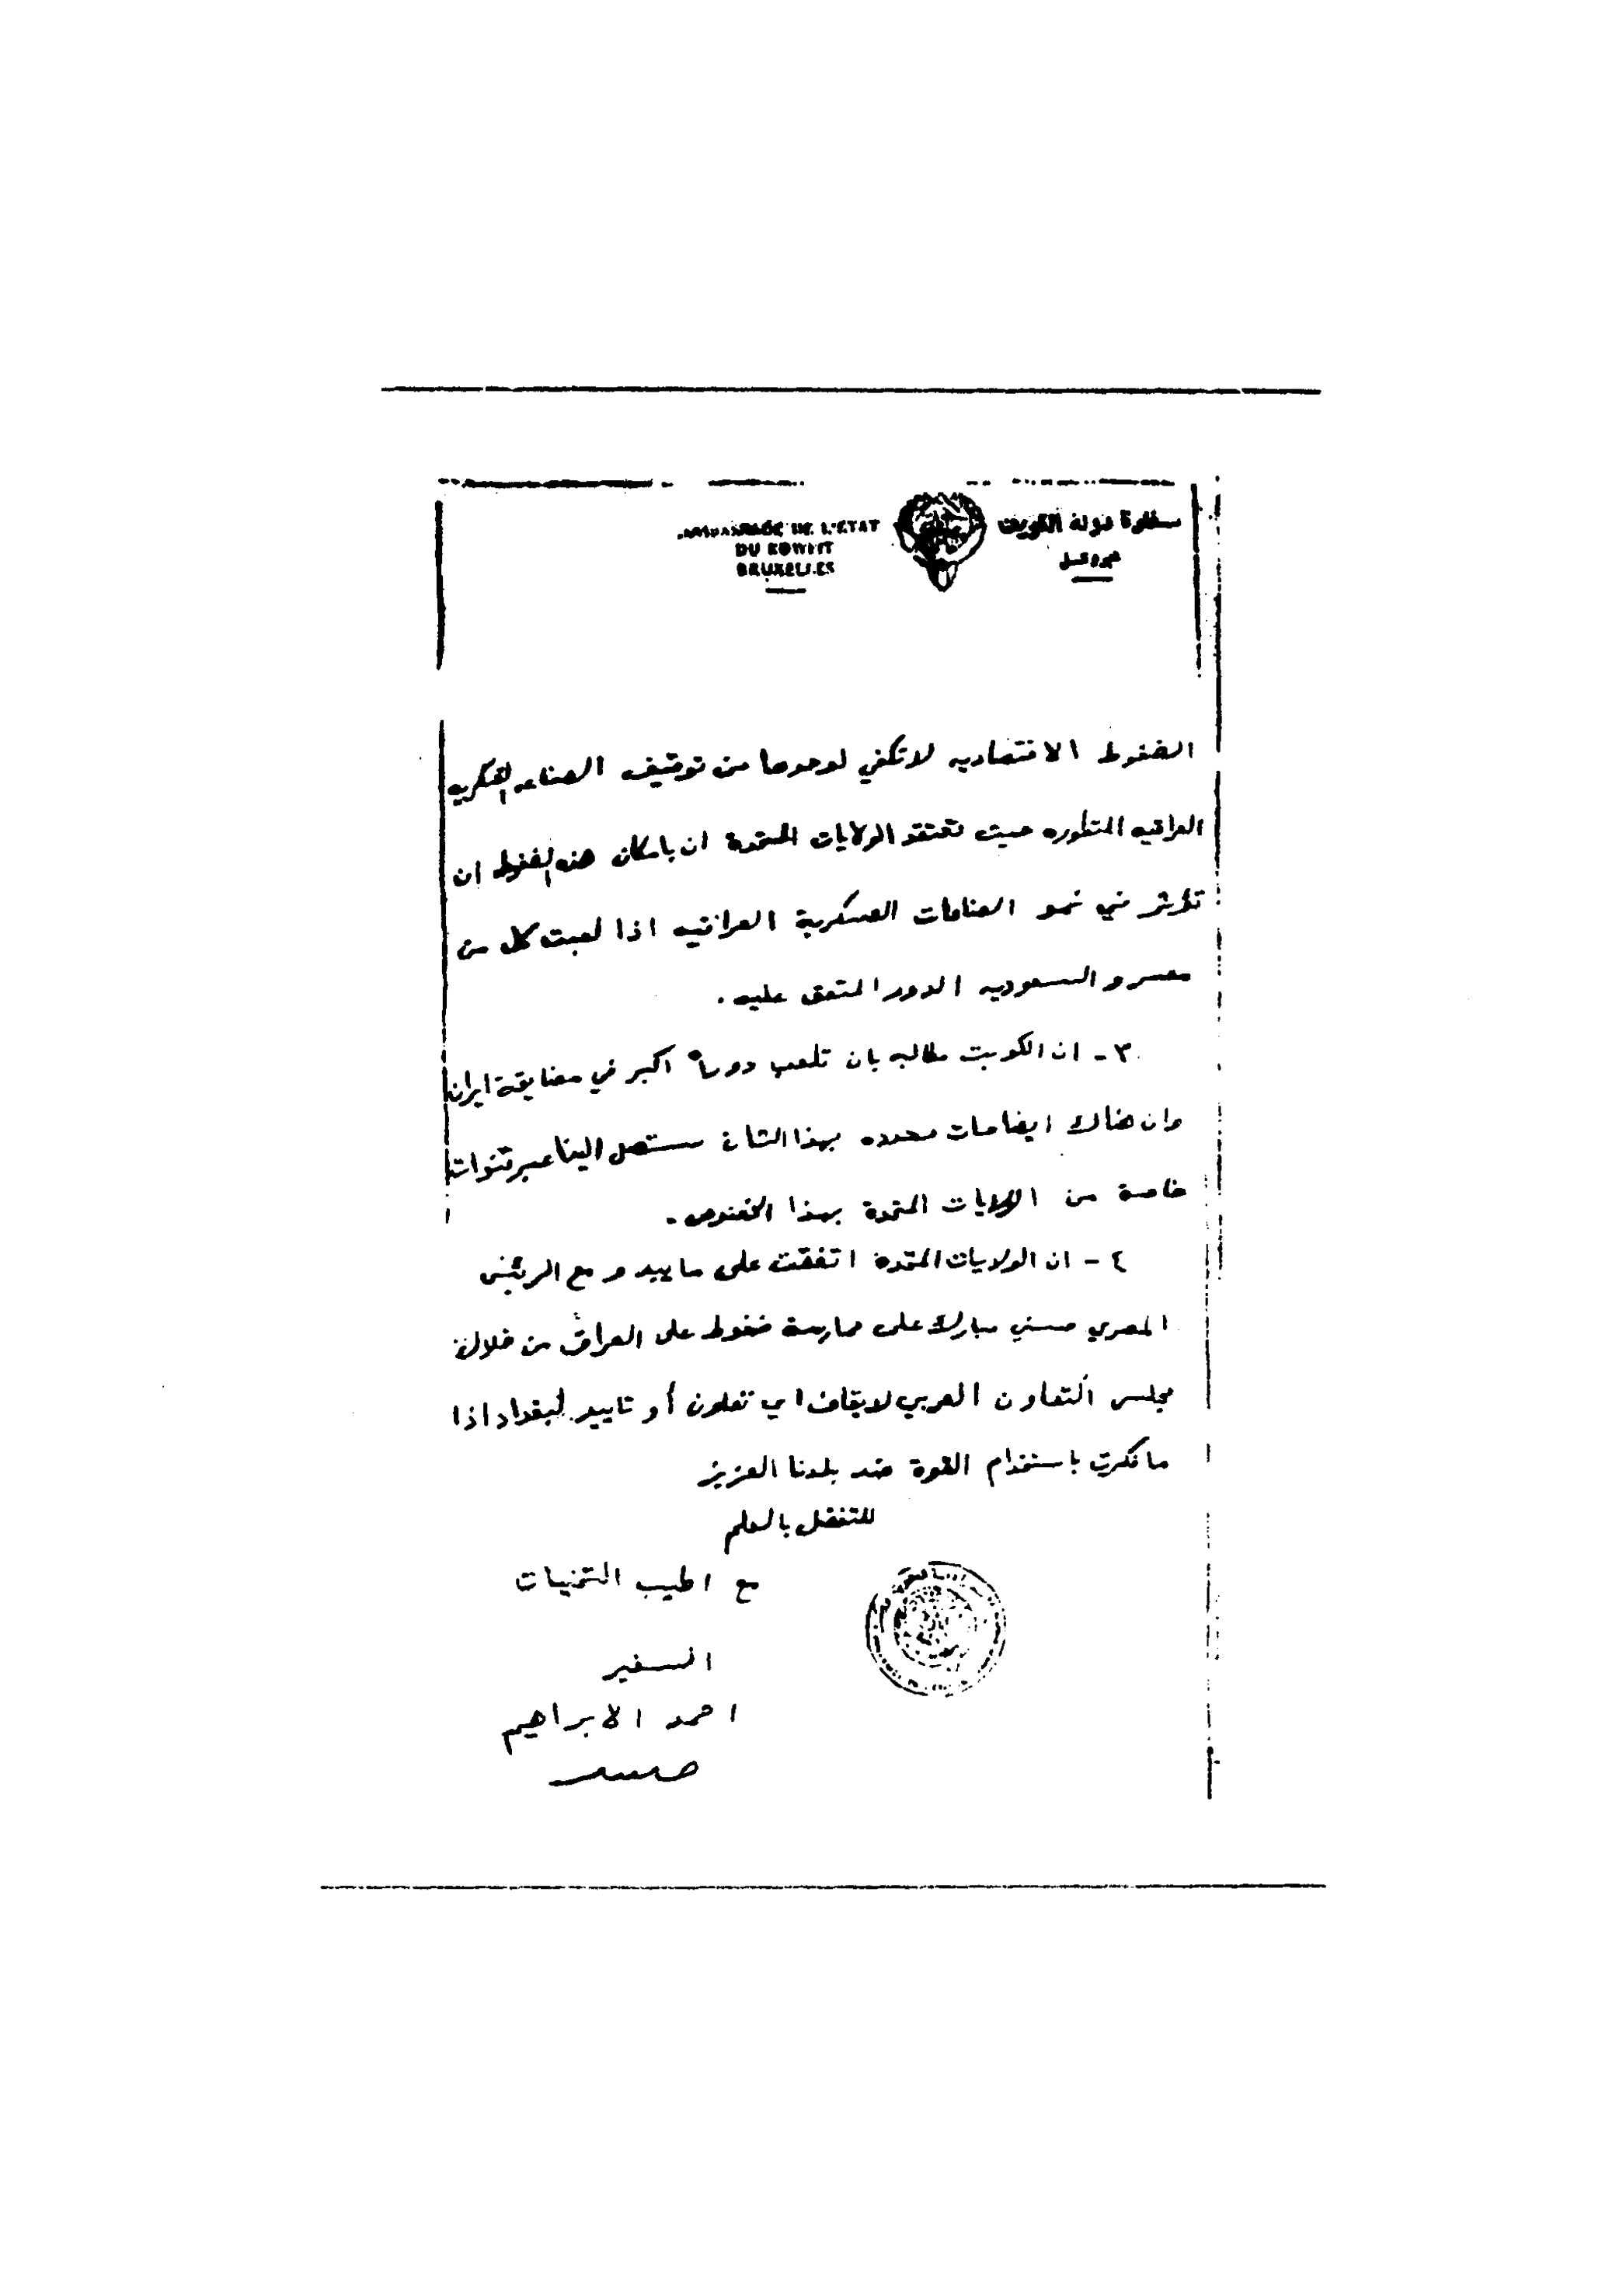 سفارة دولة الكويت
بروكسل
AMBASSADE DE L'ETAT
DU KOWEIT
BRUXELLES
الضغوط الاقتصاديه لاتكفي لوحدها من توقيف الصناعه العسكريه
العراقيه المتطوره حيث تعتقد الولايات المتحدة ان بامكان هذه الضغوط ان
تؤثر في نمو الصناعات العسكرية العراقيه اذا لعبت كل من
مصر والسعوديه الدور المتفق عليه .
٣ - ان الكويت مطالبه بان تلعب دوراً اكبر في مضايقة ايران
وان هناك ايضاحات محدده بهذا الشان ستصل الينا عبر قنوات
خاصة من الولايات المتحدة بهذا الخصوص .
٤ - ان الولايات المتحدة اتفقت على ما يبدو مع الرئيس
المصري حسني مبارك على ممارسة ضغوط على العراق من خلال
مجلس التعاون العربي لايقاف اي تعاون أو تاييد لبغداد اذا
ما فكرت باستخدام القوة ضد بلدنا العزيز
للتفضل بالعلم
مع اطيب التمنيات
السفير
احمد الابراهيم